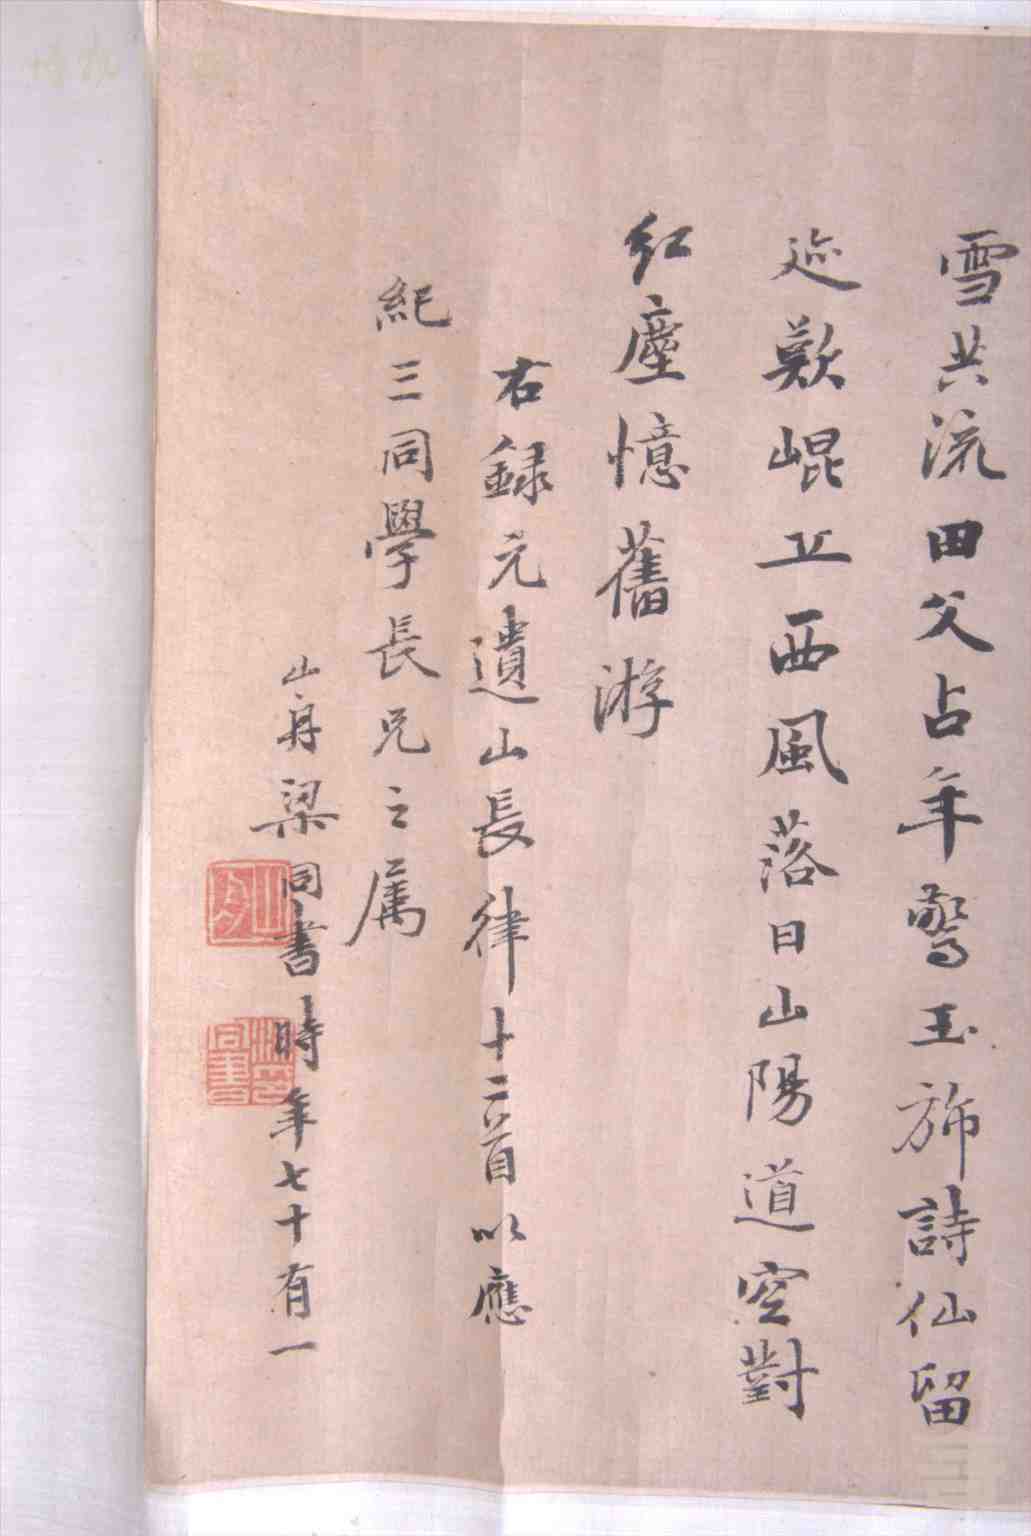 雪共流田父占年驚玉斾詩仙留
迹歎崐丘西風落日山陽道空對
紅塵憶舊游
右録元遺山長律十二首以應
紀三同學長兄之属
山舟梁同書時年七十有一
山舟
梁同書